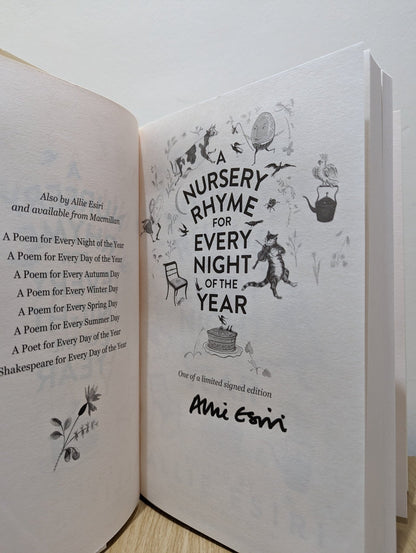 Also by Allie Esiri
and available from Macmillan
A Poem for Every Night of the Year
A Poem for Every Day of the Year
A Poem for Every Autumn Day
A Poem for Every Winter Day
A Poem for Every Spring Day
A Poem for Every Summer Day
A Poet for Every Day of the Year
Shakespeare for Every Day of the Year
A
NURSERY
RHYME
FOR
EVERY
NIGHT
OF THE
YEAR
One of a limited signed edition
Allie Esiri